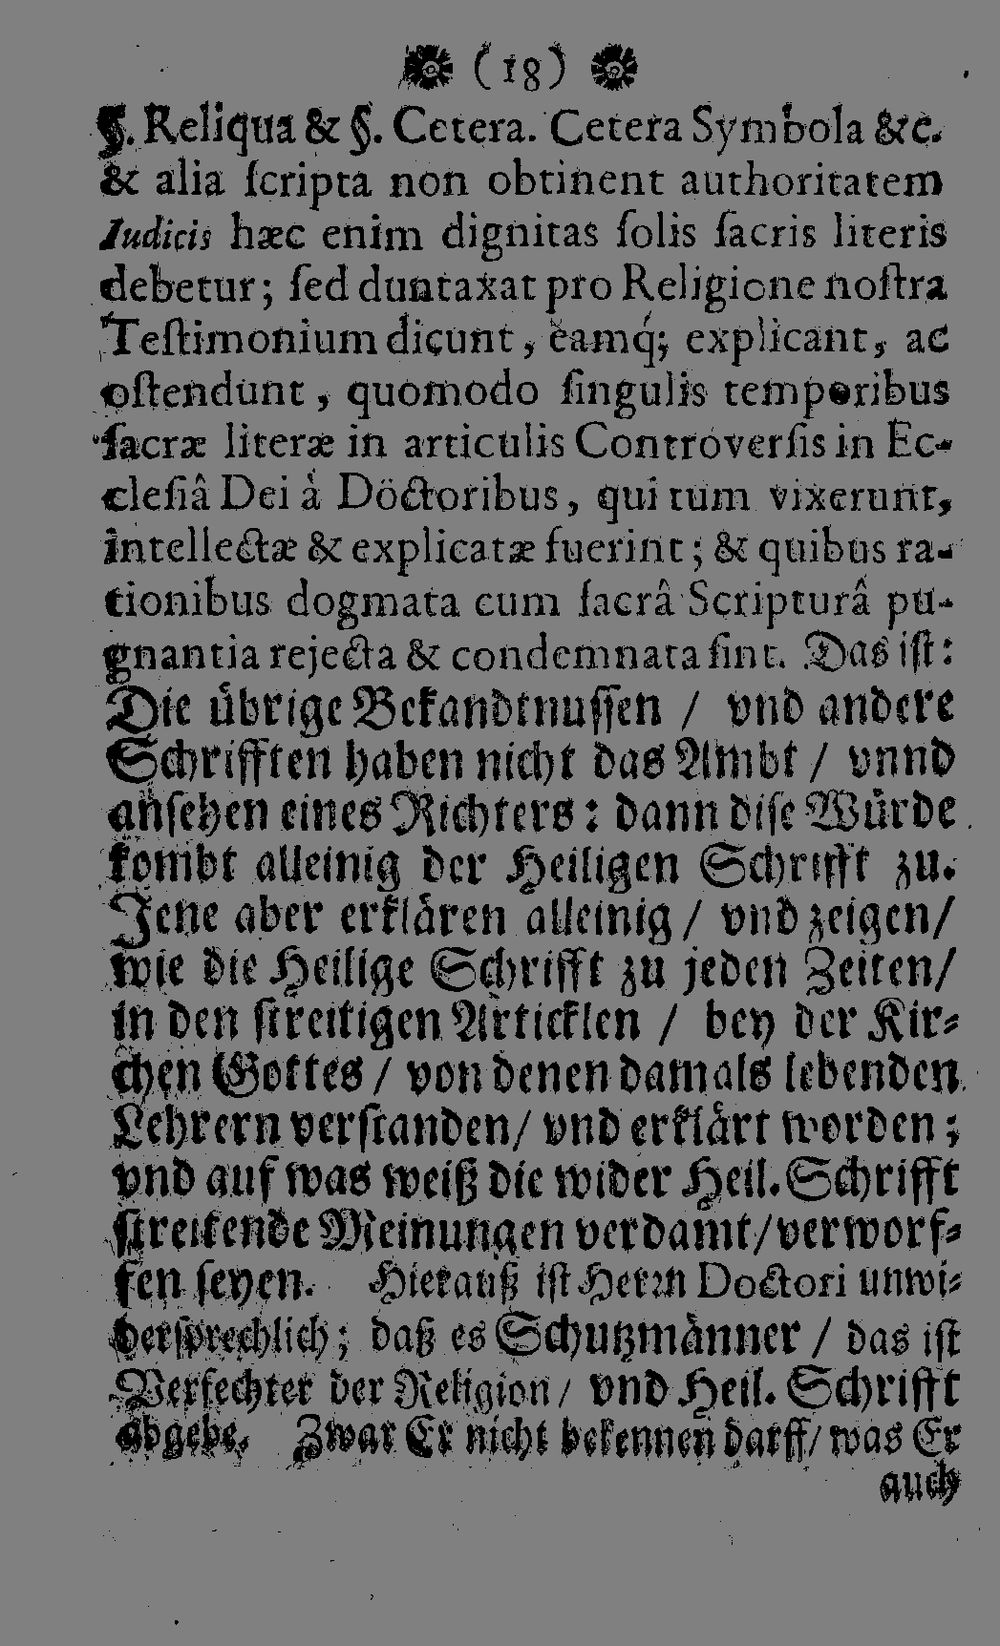 ❁ (18) ❁
§. Reliqua & §. Cetera. Cetera Symbola &c.
& alia ſcripta non obtinent authoritatem
Iudicis hæc enim dignitas ſolis ſacris literis
debetur; ſed duntaxat pro Religione noſtra
Teſtimonium dicunt, eamq́; explicant, ac
oſtendunt, quomodo ſingulis temporibus
ſacræ literæ in articulis Controverſis in Ec-
cleſiâ Dei à Doctoribus, qui tum vixerunt,
intellectæ & explicatæ fuerint; & quibus ra-
tionibus dogmata cum ſacrâ Scripturâ pu-
gnantia rejecta & condemnata ſint. Das iſt:
Die übrige Bekandtnuſſen / vnd andere
Schrifften haben nicht das Ambt / vnnd
anſehen eines Richters: dann diſe Würde
kombt alleinig der Heiligen Schrifft zu.
Jene aber erklären alleinig / vnd zeigen/
wie die Heilige Schrifft zu jeden Zeiten/
in den ſtreitigen Articklen / bey der Kir-
chen Gottes / von denen damals lebenden
Lehrern verſtanden/ vnd erklärt worden;
vnd auf was weiß die wider Heil. Schrifft
ſtreitende Meinungen verdamt/verworf-
fen ſeyen. Hierauß iſt Herrn Doctori unwi-
derſprechlich; daß es Schutzmänner / das iſt
Verfechter der Religion/ vnd Heil. Schrifft
abgebe. Zwar Er nicht bekennen darff/ was Er
auch